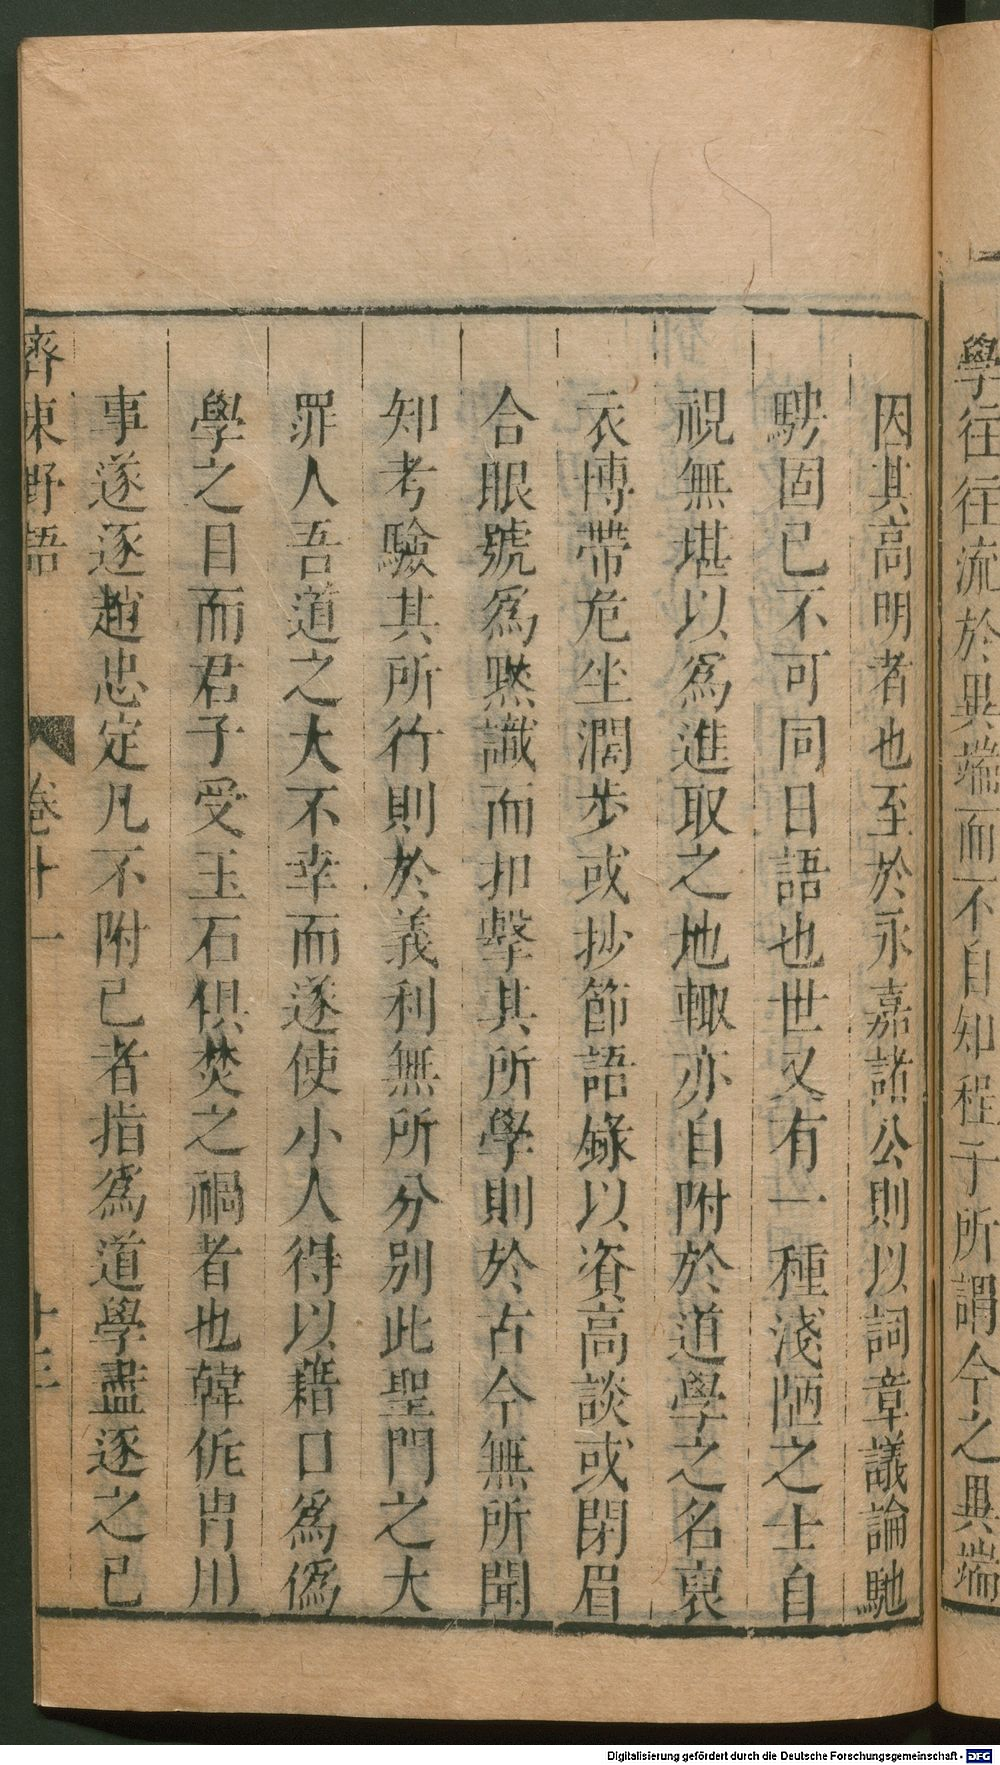 學往往流於異端而不自知程子所謂今之異端
因其高明者也至於永嘉諸公則以詞章議論馳
騁固已不可同日語也世又有一種淺陋之士自
視無堪以爲進取之地輙亦自附於道學之名裒
衣博帶危坐濶步或抄節語錄以資高談或閉眉
合眼號爲黙識而扣擊其所學則於古今無所聞
知考驗其所行則於義利無所分别此聖門之大
罪人吾道之大不幸而遂使小人得以藉口爲僞
學之目而君子受玉石俱焚之禍者也韓侂胄用
事遂逐趙忠定凡不附已者指爲道學盡逐之已
齊東野語 卷十一 十三
Digitalisierung gefördert durch die Deutsche Forschungsgemeinschaft - DFG